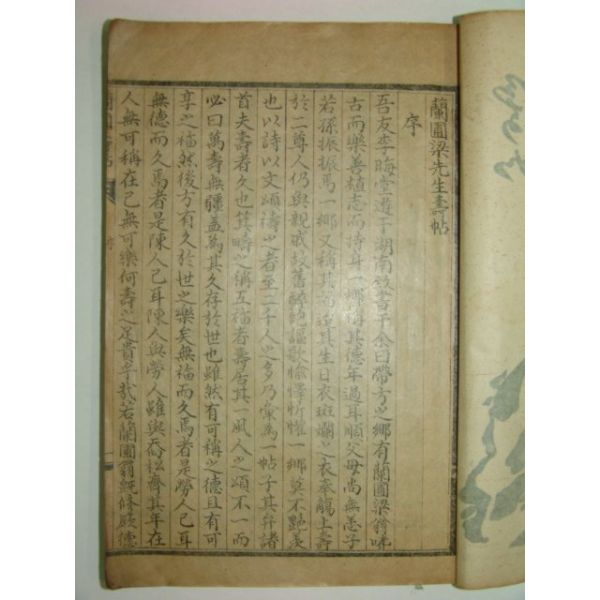 蘭圃梁先生壽帖
序
吾友李晦堂遊于湖南敀書于余曰帶方之鄉有蘭圃梁翁味
古而樂善植志而持身一鄉稱其德年過耳順父母尚無恙子
若孫振振焉一鄉又稱其福設其生日衣斑斕之衣奉觴上壽
於二尊人仍與親戚故舊醉飽謳歌愉懌忻懽一鄉莫不艶羡
也以詩以文頌禱之者至二千人之多乃彙為一帖子其弁諸
首夫壽者久也箕疇之稱五福者壽居其一風人之頌不一而
必曰萬壽無疆盖為其久存於世也雖然有可稱之德且有可
享之福然後方有久於世之樂矣無福而久焉者是勞人已耳
無德而久焉者是陳人已耳陳人與勞人雖與喬松齊其年在
人無可稱在己無可樂何壽之足貴乎哉若蘭圃翁旣修厥德